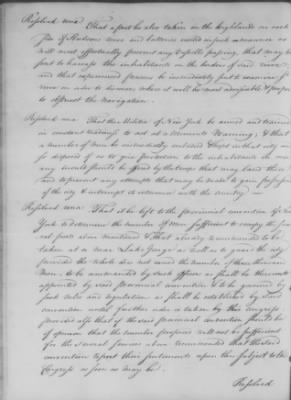 Resolved una: That a post be also taken in the highlands on each
side of Hudsons river and batteries erected in such manner as
will most effectually prevent any vessels passing that may be
sent to harrass the inhabitants on the borders of said river
and that experienced persons be immediately sent to examine sd
river in order to discover where it will be most adviseable & proper
to obstruct the navigation.
Resolved una: That the Militia of New York be armed and trained
in constant readiness to act at a moments Warning; & that
a number of men be immediately embodied & kept in that city
so disposed of as to give protection to the inhabitants in case
any insult should be offered by the troops that may land there
and to prevent any attempts that may be made to gain possession
of the city & interrupt its intercourse with the country —
Resolved una: That it be left to the provincial convention of New
York to determine the number of men sufficient to occupy the several
posts above mentioned & that already recommended to be
taken at or near Lake George as well as to guard the city
provided the whole does not exceed the number of three thousand
Men, to be commanded by such officers as shall be thereunto
appointed by said provincial convention & to be governed by
such rules and regulations as shall be established by said
convention until farther order is taken by this congress
provided also that if the said provincial convention should be
of opinion that the number proposed will not be sufficient
for the several services above recommended that the said
convention report their sentiments upon this subject to the
Congress as soon as may be.
Resolved